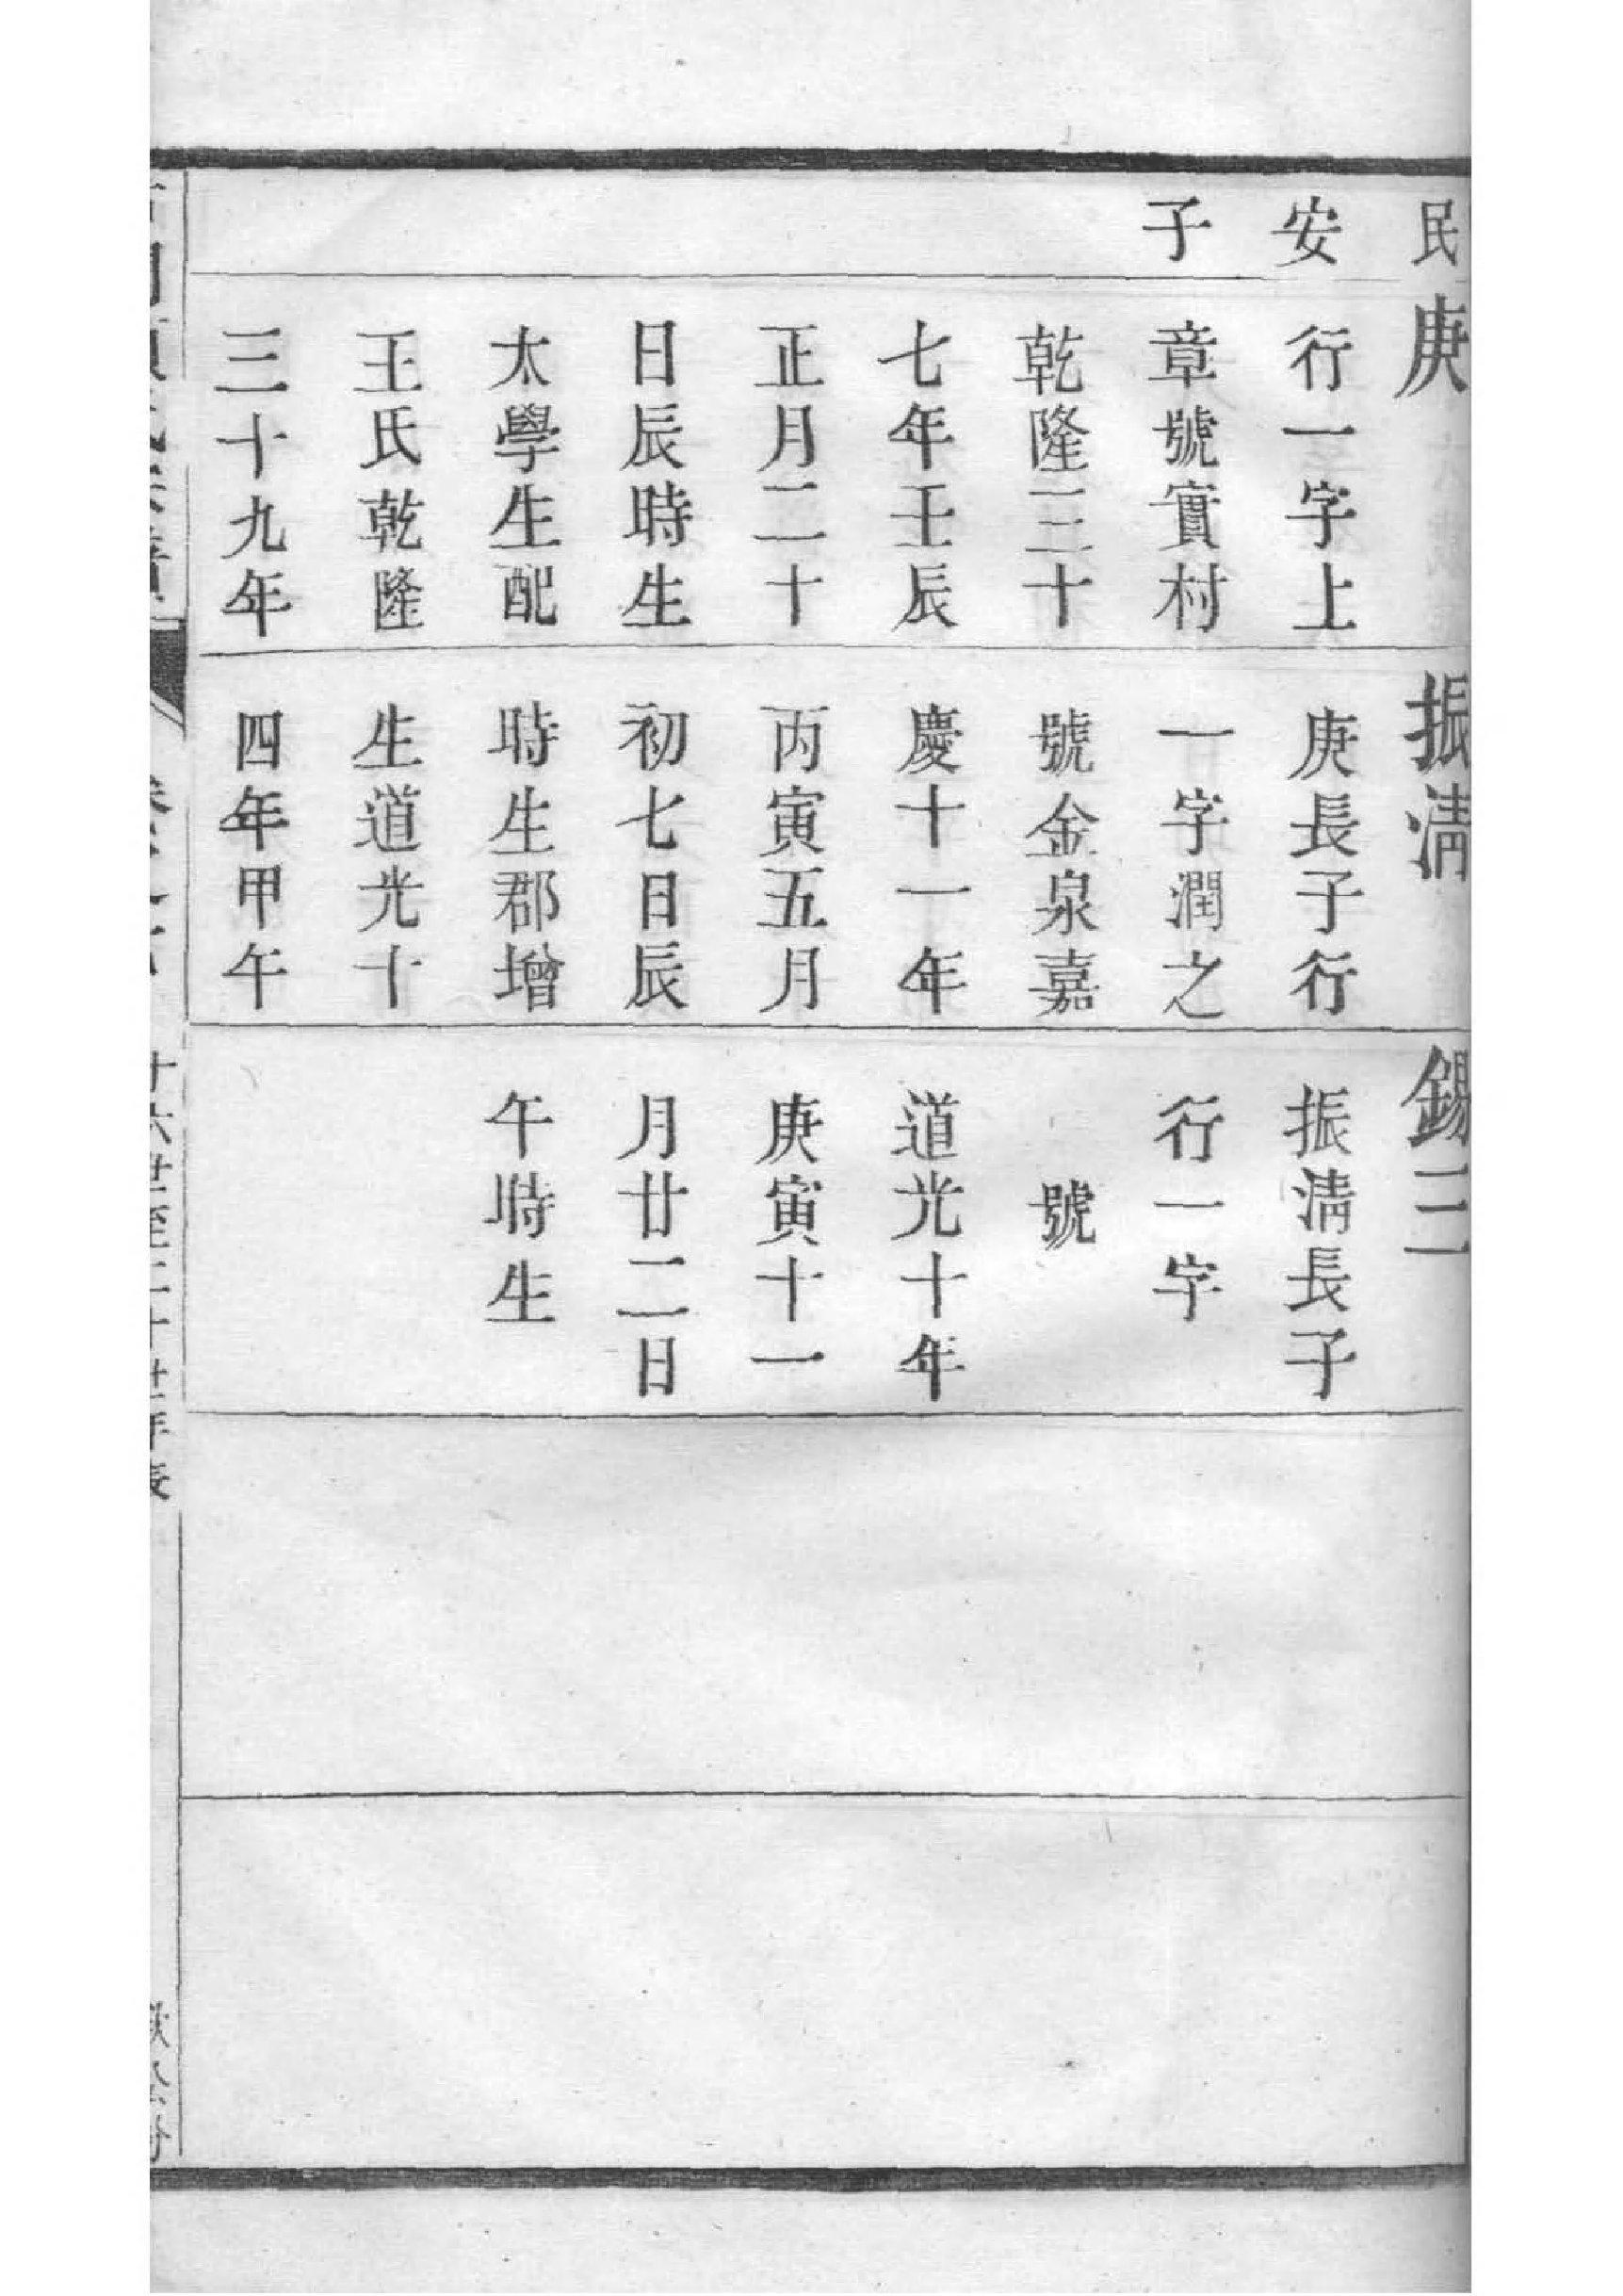 民
安
子
庚
行一字上
章號實村
乾隆三十
七年壬辰
正月二十
日辰時生
太學生配
王氏乾隆
三十九年
振淸
庚長子行
一字潤之
號金泉嘉
慶十一年
丙寅五月
初七日辰
時生郡增
生道光十
四年甲午
錫三
振淸長子
行一字
號
道光十年
庚寅十一
月廿二日
午時生
十六世至二十世年表